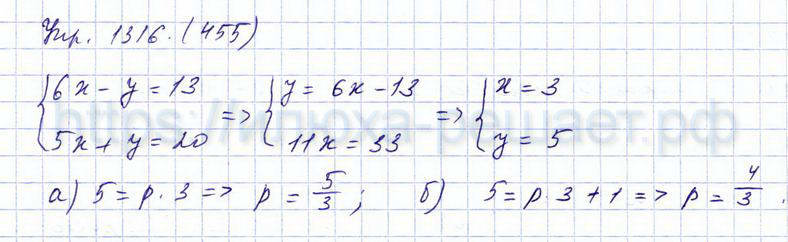 Упр. 1316. (455)
{6x - y = 13 => {y = 6x - 13 => {x = 3
{5x + y = 20 {11x = 33 {y = 5
https://илюха-решает.рф
а) 5 = p · 3 => p = 5/3; б) 5 = p · 3 + 1 => p = 4/3.